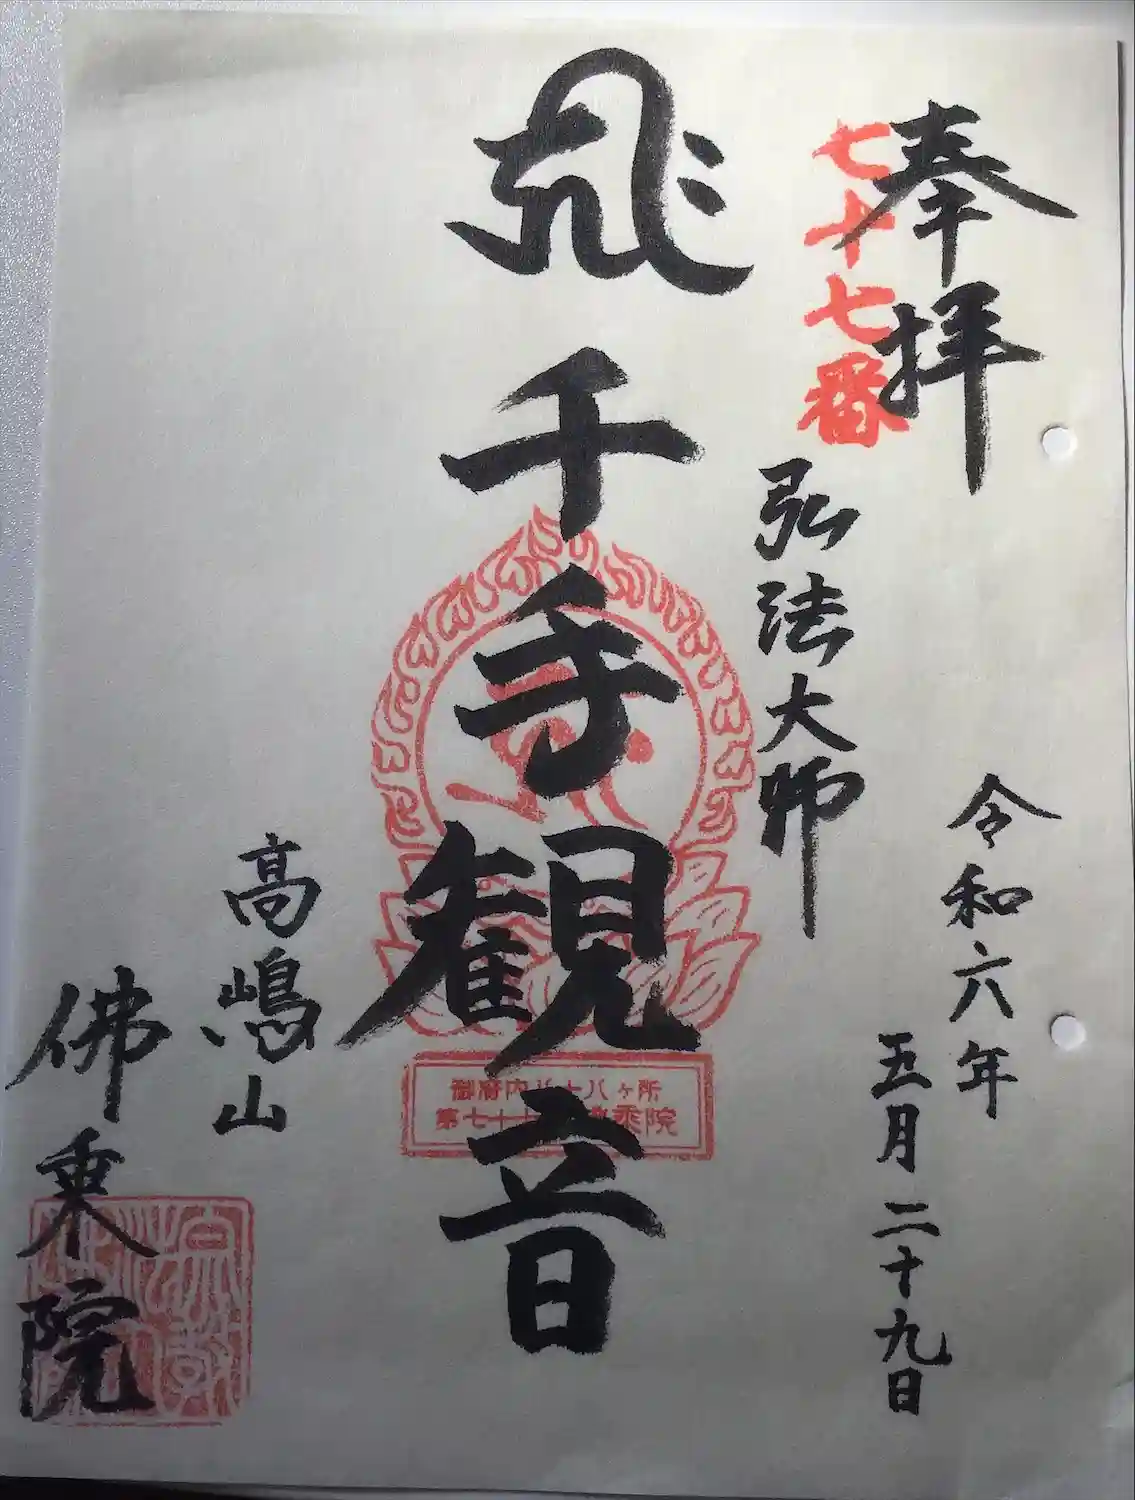 奉拝
七十七番
令和六年
五月二十九日
弘法大師
千手観音
御府内八十八ヶ所
第七十
乘院
高嶋山
佛乗院